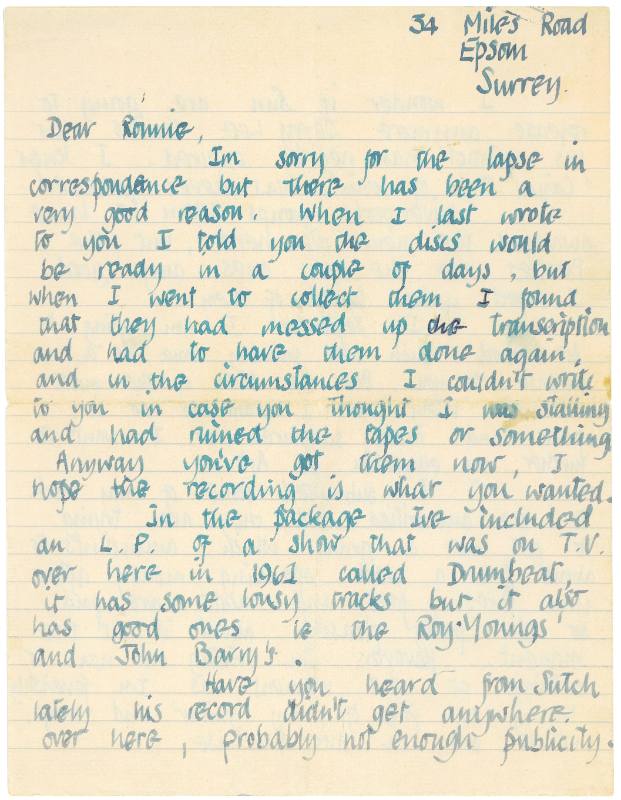 34 Miles Road
Epsom
Surrey.
Dear Ronnie,
Im sorry for the lapse in
correspondence but there has been a
very good reason. When I last wrote
to you I told you the discs would
be ready in a couple of days, but
when I went to collect them I found
that they had messed up the transcription
and had to have them done again,
and in the circumstances I couldn't write
to you in case you thought I was stalling
and had ruined the tapes or something
Anyway you've got them now, I
hope the recording is what you wanted.
In the package Ive included
an L.P. of a show that was on T.V.
over here in 1961 called Drumbeat,
it has some lousy tracks but it also
has good ones ie the Roy Youngs
and John Barry's.
Have you heard from Sutch
lately his record didn't get anywhere
over here, probably not enough publicity.